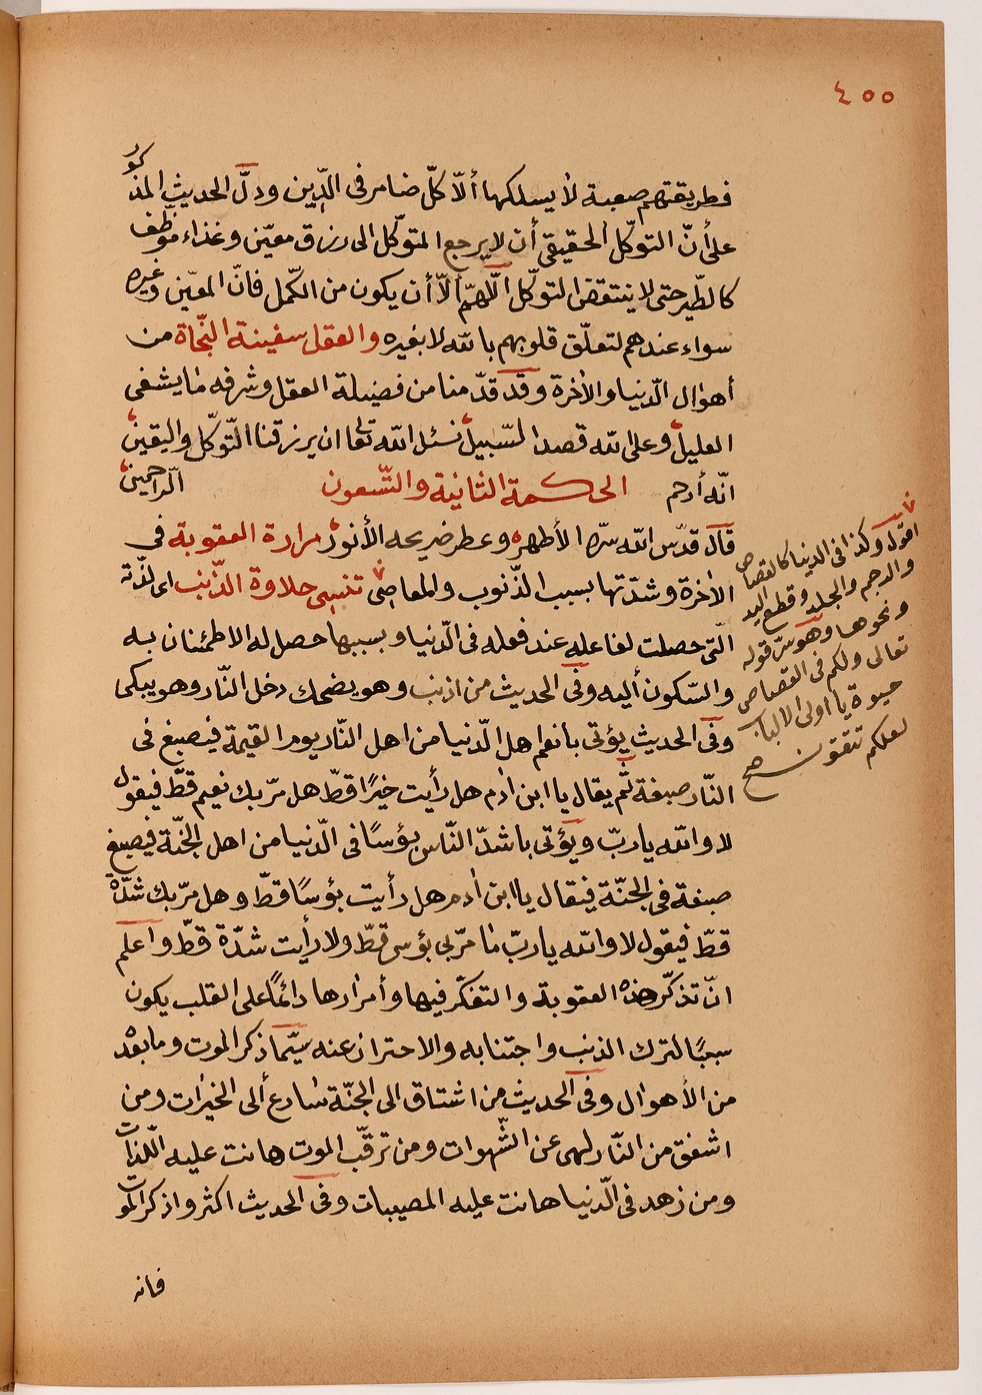 ٤٥٥
فطريقتهم صعبة لا يسلكها ألّا كلّ ضامر فى الدّين ودلّ الحديث المذكور
على أنّ التوكّل الحقيقى أن لا يرجع المتوكّل الى رزق معيّن وغذاء موظّف
كالطّير حتى لا ينتقض التوكّل اللّهمّ ألّا أن يكون من الكّمل فانّ المعيّن وغيره
سواء عندهم لتعلّق قلوبهم بالله لا بغيره والعقل سفينة النّجاة من
أهوال الدّنيا والاخرة وقد قدّمنا من فضيلة العقل وشرفه ما يشفى
العليل وعلى الله قصد السّبيل نسئل الله تعالى ان يرزقنا التّوكّل واليقين
انّه أرحم الرّاحمين الحكمة الثانية والتّسعون
قال قدّس الله سرّه الأطهر وعطر ضريحه الأنور مرارة العقوبة فى
الاخرة وشدّتها بسبب الذّنوب والمعاصى تنسى حلاوة الذّنب اى لذّته
الّتى حصلت لفاعله عند فعله فى الدّنيا وبسببها حصل له الاطمئنان به
والسّكون أليه وفى الحديث من اذنب وهو يضحك دخل النّار وهو يبكى
وفى الحديث يؤتى بانعم اهل الدّنيا من اهل النّار يوم القيمة فيصبغ فى
النّار صبغة ثّم يقال يا ابن ادم هل رأيت خيرًا قطّ هل مرّ بك نعيم قطّ فيقول
لا والله يا ربّ ويؤتى باشدّ النّاس بؤسًا فى الدّنيا من اهل الجنّة فيصبغ
صبغة فى الجنّة فيقال يا ابن ادم هل رأيت بؤسًا قطّ وهل مرّ بك شدّة
قطّ فيقول لا والله يا ربّ ما مرّ بى بؤس قطّ ولا رأيت شدّة قطّ واعلم
انّ تذكّر هذه العقوبة والتفكّر فيها وأمرارها دائمًا على القلب يكون
سببًا لترك الذنب واجتنابه والاحتراز عنه سيّما ذكر الموت وما بعده
من الأهوال وفى الحديث من اشتاق الى الجنّة سارع ألى الخيرات ومن
اشفق من النّار لهى عن الشّهوات ومن ترقّب الموت هانت عليه اللّذات
ومن زهد فى الدّنيا هانت عليه المصيبات وفى الحديث اكثروا ذكر الموت
فانه
اقول وكذا فى الدنيا كالقصاص
والرجم والجلد وقطع اليد
ونحوها وهو سرّ قوله
تعالى ولكم فى القصاص
حيوة يا اولى الالباب
لعلكم تتقون صح